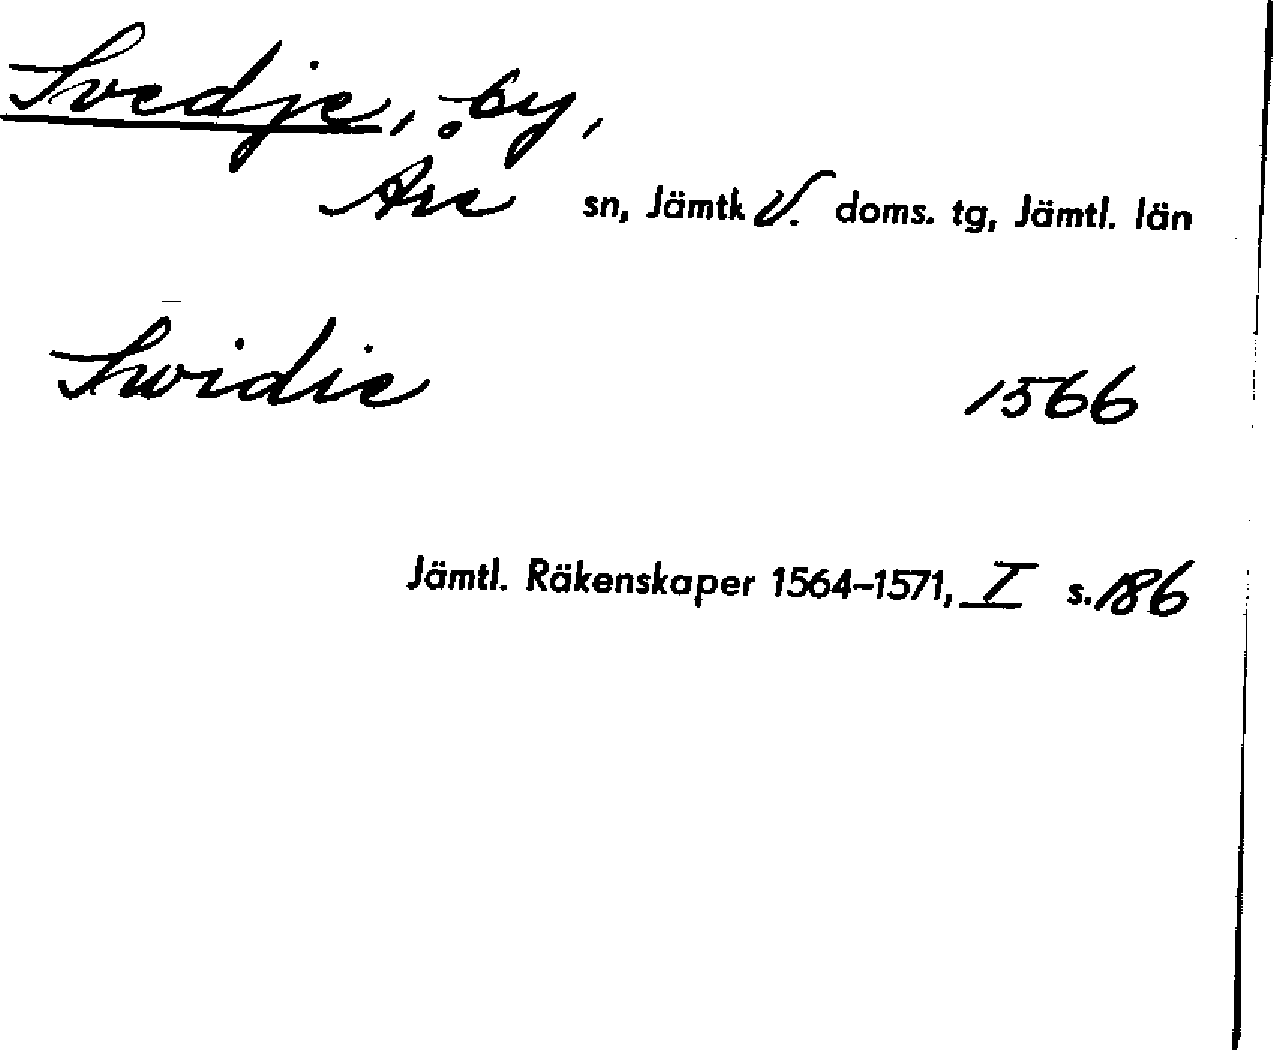 Svedje, by,
Åre sn, Jämtl V. doms. tg, Jämtl. län
Swidie 1566
Jämtl. Räkenskaper 1564–1571, I s. 186